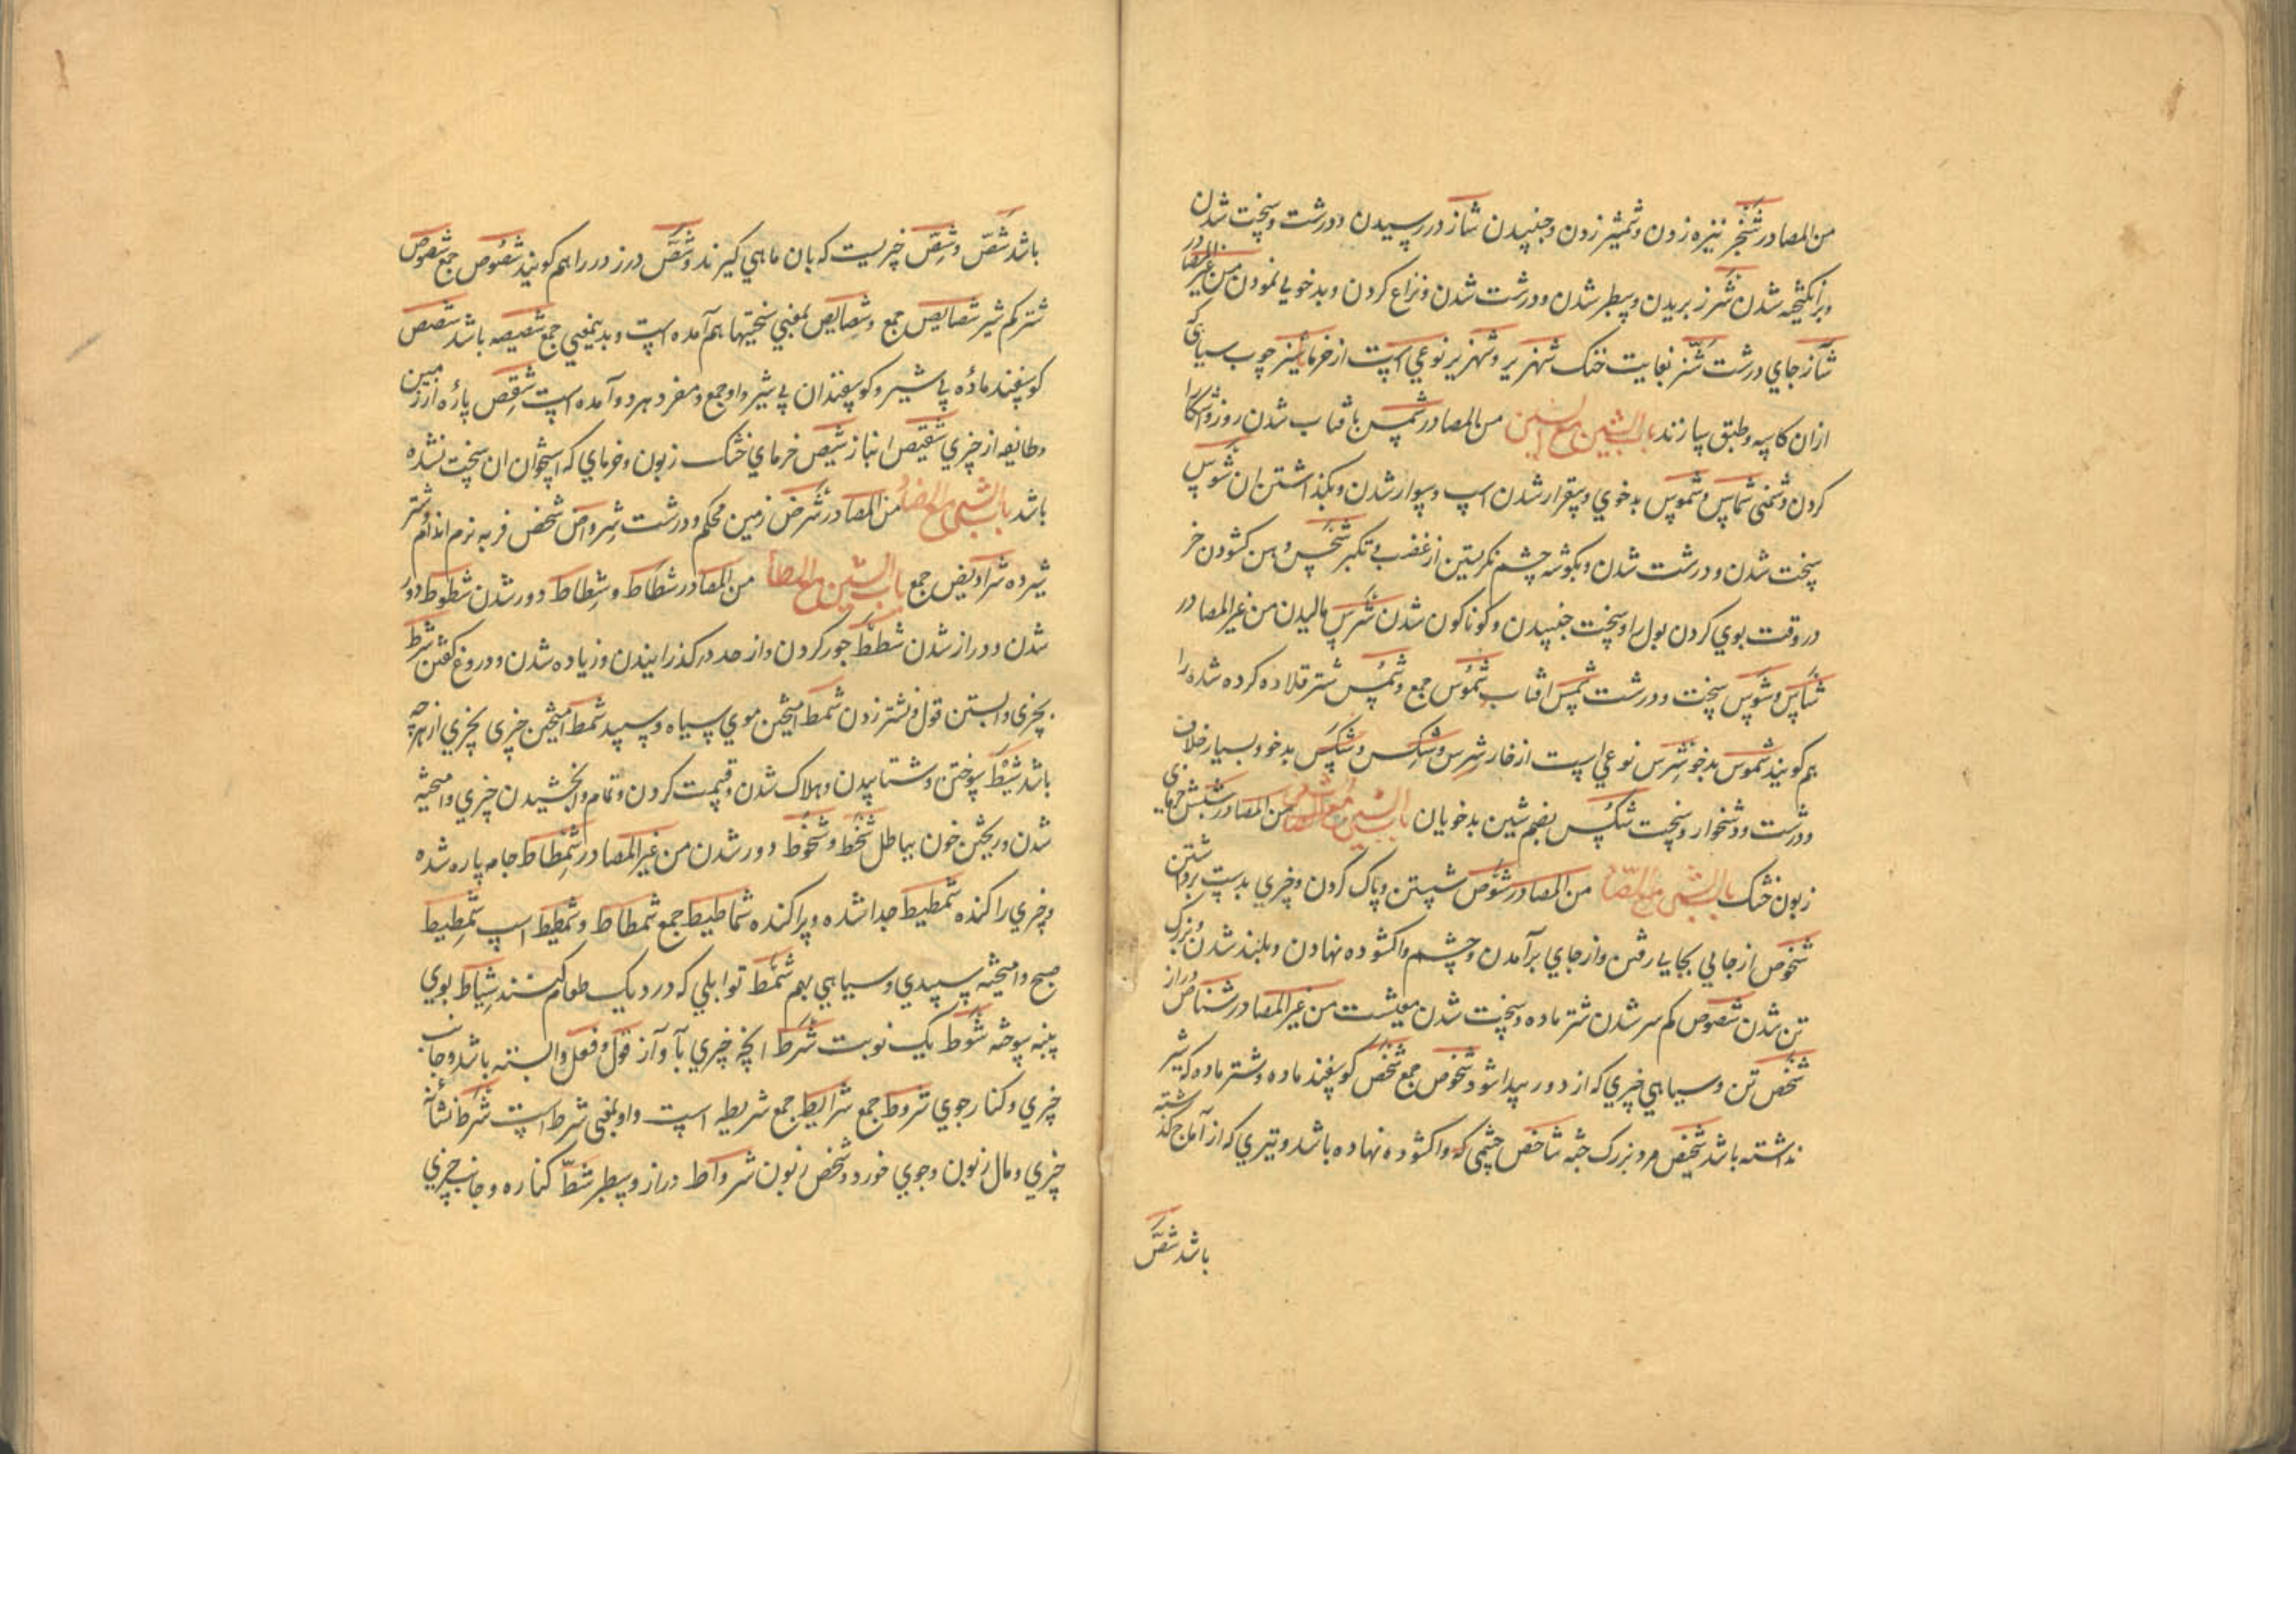 من المصادر شخز نیزه زدن و شمشیر زدن و جنبیدن شاز در رسیدن و درشت و سخت شدن
و برانگیخته شدن شرز بریدن و سطبر شدن و درشت شدن و نزاع کردن و بدخویی نمودن من غیر المصادر
شآز جای درشت شنز بغایت خنک شهریر و شهریز نوعی است از خرما شیز چوب سیاهی که
ازان کاسه و طبق سازند باب الشین مع السین من المصادر شمس بافتاب شدن روز و آشکارا
کردن دشمنی شماس و شموس بدخوی و بیقرار شدن اسپ و سوار شدن و نگذاشتن ان شوس
سخت شدن و درشت شدن و بگوشه چشم نگریستن از غضب و تکبر شخس دهن گشودن خر
در وقت بوی کردن بول را و سخت جنبیدن و گوناگون شدن شرس مالیدن من غیر المصادر
شاس و شوس سخت و درشت شمس افتاب شموس جمع و شمس شتر قلاده کرده شده را
هم گویند شموس بدخو شرس نوعی است از خار شرس و شکس و شکس بدخو و بسیار خلاف
و درشت و دشخوار و سخت شکس بضم شین بدخویان باب الشین مع الشین من المصادر شیش خرمای
زبون خشک باب الشین مع الصاد من المصادر شوص شستن و پاک کردن و چیزی بدست برداشتن
شخوص از جایی بجایی رفتن و از جای برآمدن و چشم واگشوده نهادن و بلند شدن و بزرگ
تن شدن شصوص کم شیر شدن شتر ماده و سخت شدن معیشت من غیر المصادر شناص دراز
شخص تن و سیاهی چیزی که از دور پیدا شود شخوص جمع شخص گوسفند ماده و شتر ماده که شیر
نداشته باشد شخیص مرد بزرگ جثه شاخص چشمی که واگشوده نهاده باشد و تیری که از آماج گذشته
باشد شصّ
باشد شصّ و شصّ چیزیست که بان ماهی گیرند و شصّ درز در را هم گویند شصوص جمع شصوص
شتر کم شیر شصایص جمع و شصایص بمعنی سختیها هم آمده است و بدینمعنی جمع شصیصه باشد شصص
گوسفند ماده بی شیر و گوسفندان بی شیر و او جمع و مفرد هر دو آمده است شقص پاره از زمین
و طایفه از چیزی شقیص انباز شیص خرمای خشک زبون و خرمای که استخوان ان سخت نشده
باشد باب الشین مع الضاد من المصادر شرض زمین محکم و درشت شرواض شخص فربه نرم اندام و شتر
شیرده شراویض جمع باب الشین مع الطاء من المصادر شطاط و شطاط دور شدن شطوط دور
شدن و دراز شدن شطط جور کردن و از حد درگذرانیدن و زیاده شدن و دروغ گفتن شرط
بچیزی وابستن قول و نشتر زدن شمط امیختن موی سیاه و سپید شمط امیختن چیزی بچیزی از هر چه
باشد شیط سوختن و شتابیدن و هلاک شدن و قیمت کردن و تمام وابخشیدن چیزی و امیخته
شدن و ریختن خون بباطل شحط و شحوط دور شدن من غیر المصادر شمطاط جامه پاره شده
و چیزی راکنده شمطیط جدا شده و پراکنده شماطیط جمع شمطاط و شمطیط اسپ شمطیط
صبح و امیخته سپیدی و سیاهی بهم شمط توابلی که در دیک طعام کنند شیاط بوی
پنبه سوخته شوط یک نوبت شرط انچه چیزی بآ و آز قول و فعل وابسته باشد و جانب
چیزی و کنار جوی شروط جمع شرایط جمع شریطه است و او بمعنی شرط است شرط نشانه
چیزی و مال زبون و جوی خورد و شخص زبون شرواط دراز و سطبر شطّ کناره و جانب چیزی